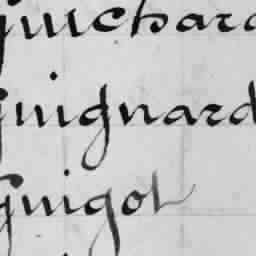 Guichard
Guignard
Guigot